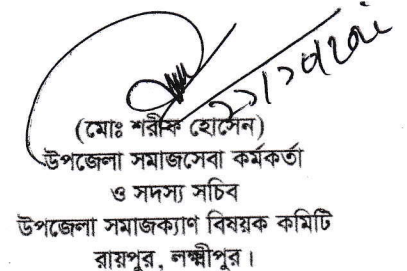 (মোঃ শরীফ হোসেন)
উপজেলা সমাজসেবা কর্মকর্তা
ও সদস্য সচিব
উপজেলা সমাজকল্যাণ বিষয়ক কমিটি
রায়পুর, লক্ষ্মীপুর।